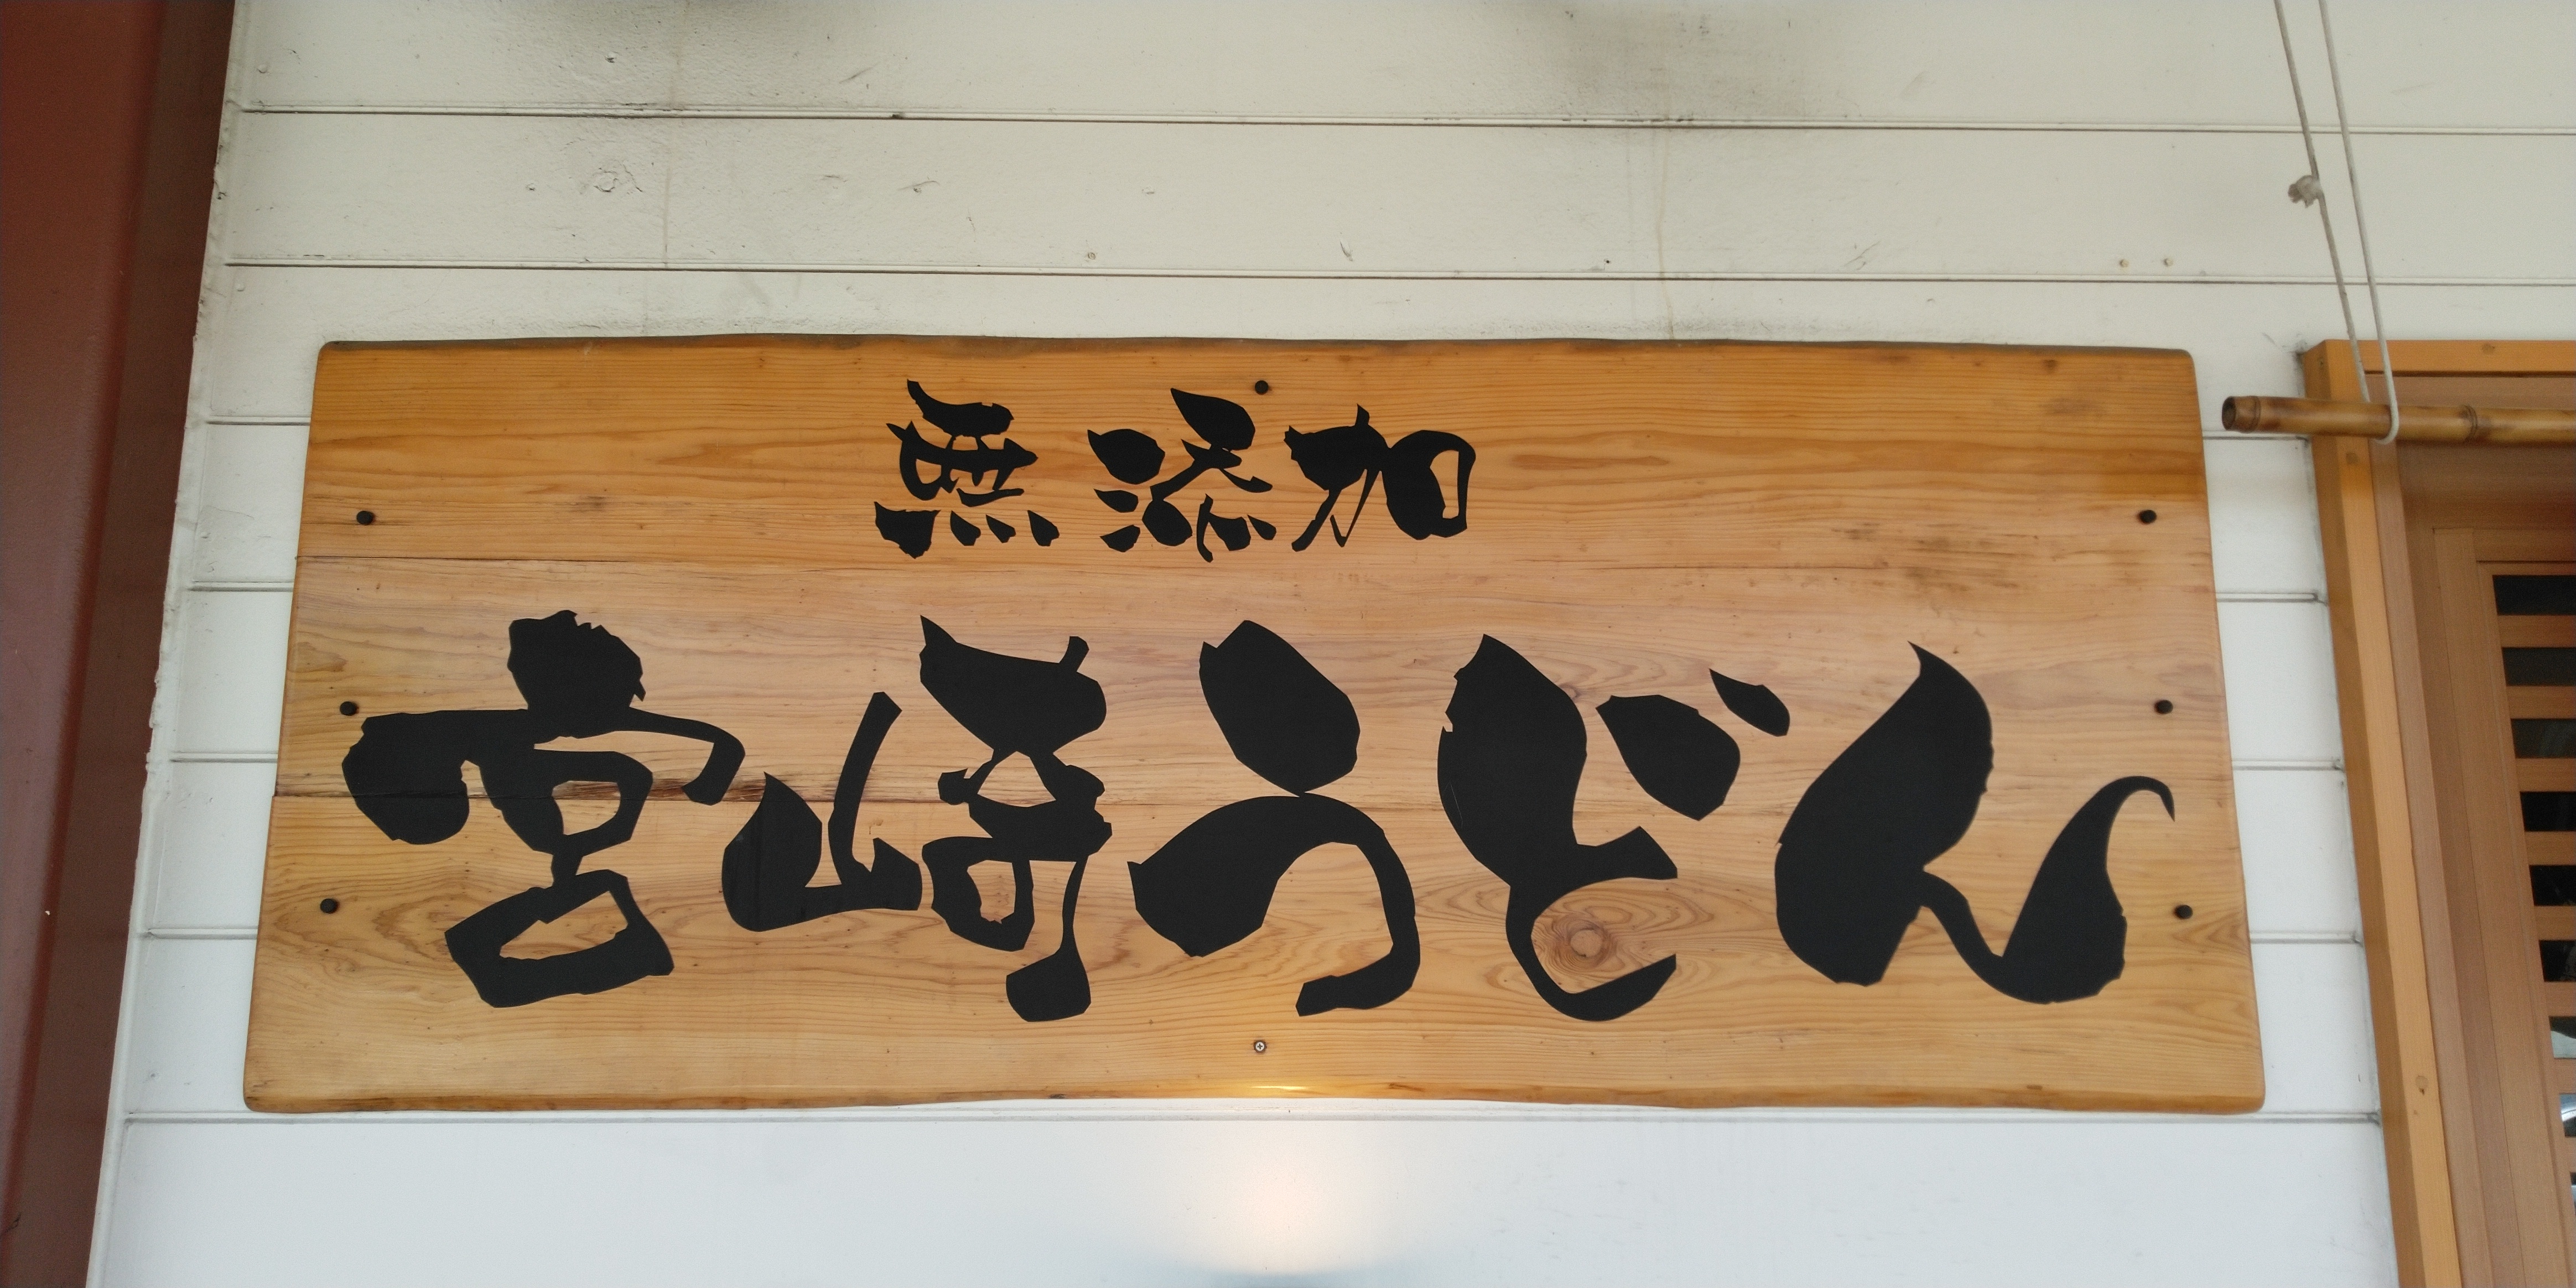 無添加
宮崎うどん